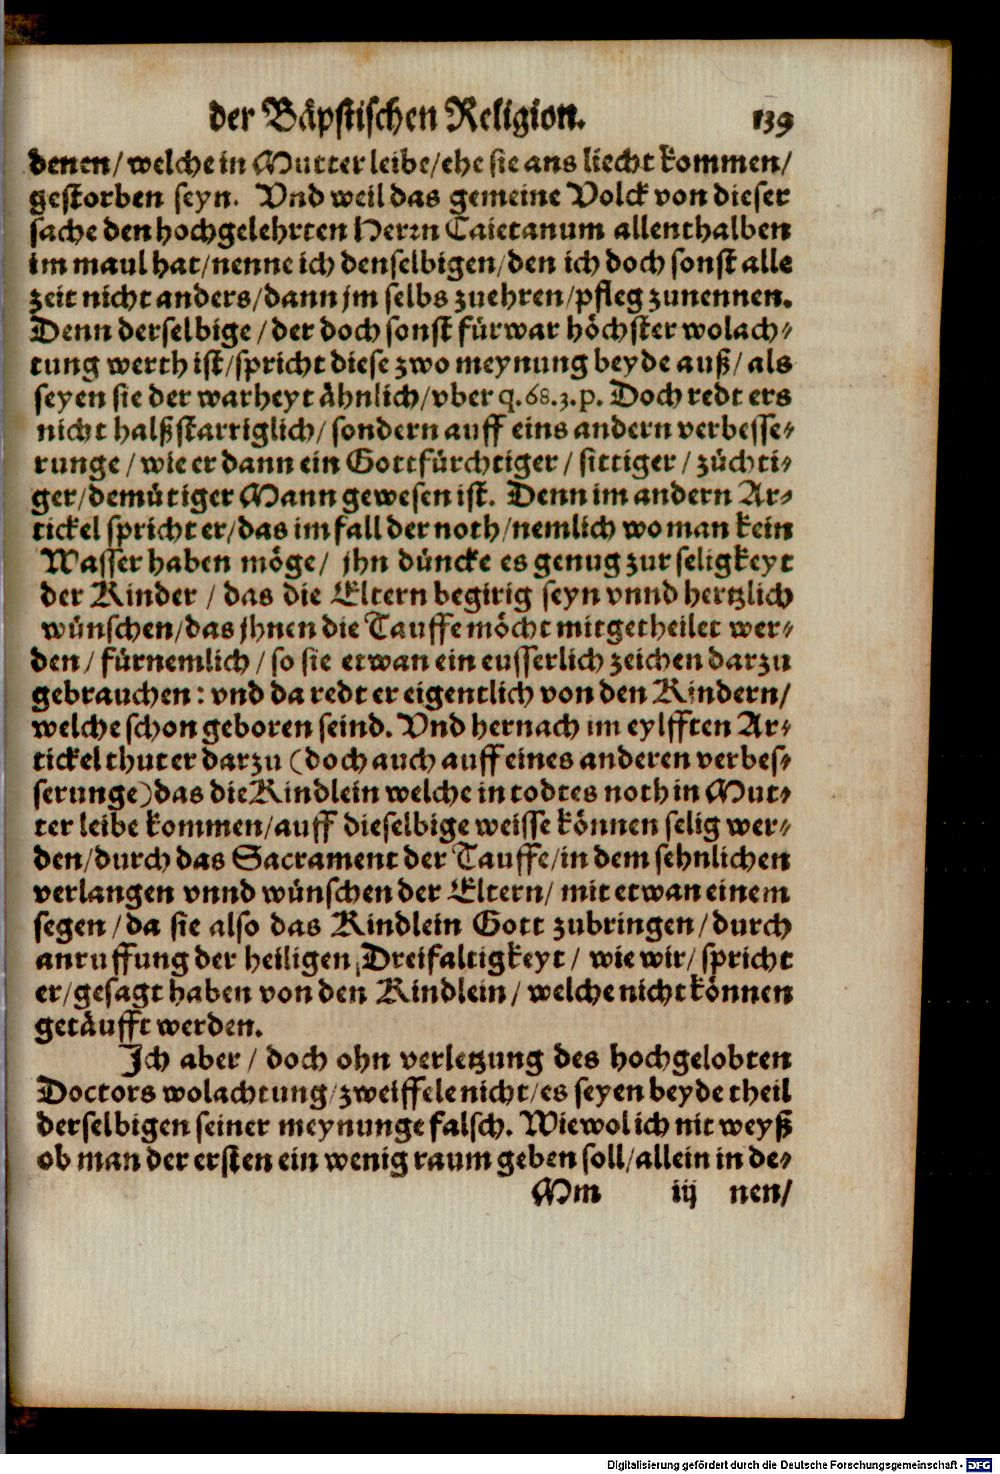 der Bäpstischen Religion. 139
denen/ welche in Mutter leibe/ ehe sie ans liecht kommen/
gestorben seyn. Vnd weil das gemeine Volck von dieser
sache den hochgelehrten Herrn Caietanum allenthalben
im maul hat/ nenne ich denselbigen/ den ich doch sonst alle
zeit nicht anders/ dann jm selbs zuehren/ pfleg zunennen.
Denn derselbige / der doch sonst fürwar höchster wolach-
tung werth ist/ spricht diese zwo meynung beyde auß/ als
seyen sie der warheyt ähnlich/ vber q. 68. 3. p. Doch redt ers
nicht halßstarriglich/ sondern auff eins andern verbesse-
runge / wie er dann ein Gottfürchtiger / sittiger / züchti-
ger/ demütiger Mann gewesen ist. Denn im andern Ar-
tickel spricht er/ das im fall der noth/ nemlich wo man kein
Wasser haben möge/ jhn düncke es genug zur seligkeyt
der Kinder / das die Eltern begirig seyn vnnd hertzlich
wünschen/ das jhnen die Tauffe möcht mitgetheilet wer-
den/ fürnemlich / so sie etwan ein eusserlich zeichen darzu
gebrauchen: vnd da redt er eigentlich von den Kindern/
welche schon geboren seind. Vnd hernach im eylfften Ar-
tickel thut er darzu (doch auch auff eines anderen verbes-
serunge) das die Kindlein welche in todtes noth in Mut-
ter leibe kommen/ auff dieselbige weisse können selig wer-
den/ durch das Sacrament der Tauffe/ in dem sehnlichen
verlangen vnnd wünschen der Eltern/ mit etwan einem
segen / da sie also das Kindlein Gott zubringen / durch
anruffung der heiligen Dreifaltigkeyt / wie wir/ spricht
er/ gesagt haben von den Kindlein / welche nicht können
getäufft werden.
Ich aber / doch ohn verletzung des hochgelobten
Doctors wolachtung/ zweiffele nicht/ es seyen beyde theil
derselbigen seiner meynunge falsch. Wiewol ich nit weyß
ob man der ersten ein wenig raum geben soll/ allein in de-
Mm iij nen/
Digitalisierung gefördert durch die Deutsche Forschungsgemeinschaft - DFG